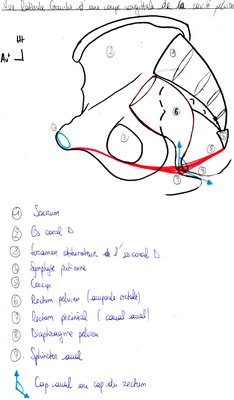 Vue latérale Gauche d'une coupe sagittale de la cavité pelvienne
Ht
Av
① Sacrum
② Os coxal D
③ Foramen obturateur de l'os coxal D
④ Symphyse pubienne
⑤ Coccyx
⑥ Rectum pelvien (ampoule rectale)
⑦ Rectum périnéal (canal anal)
⑧ Diaphragme pelvien
⑨ Sphincter anal
Cap anal ou cap du rectum.